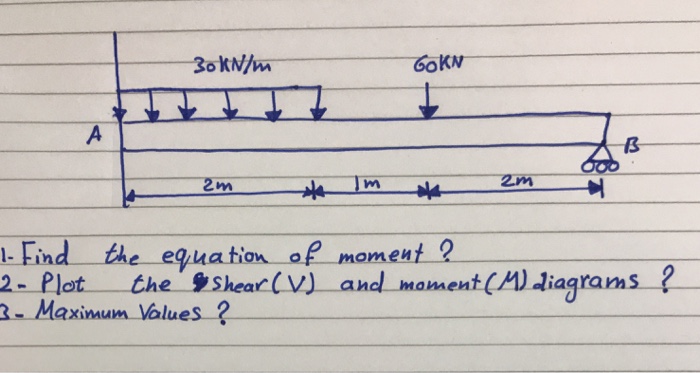 30KN/m 60KN
A B
2m 1m 2m
1- Find the equation of moment ?
2- Plot the shear (V) and moment (M) diagrams ?
3- Maximum Values ?